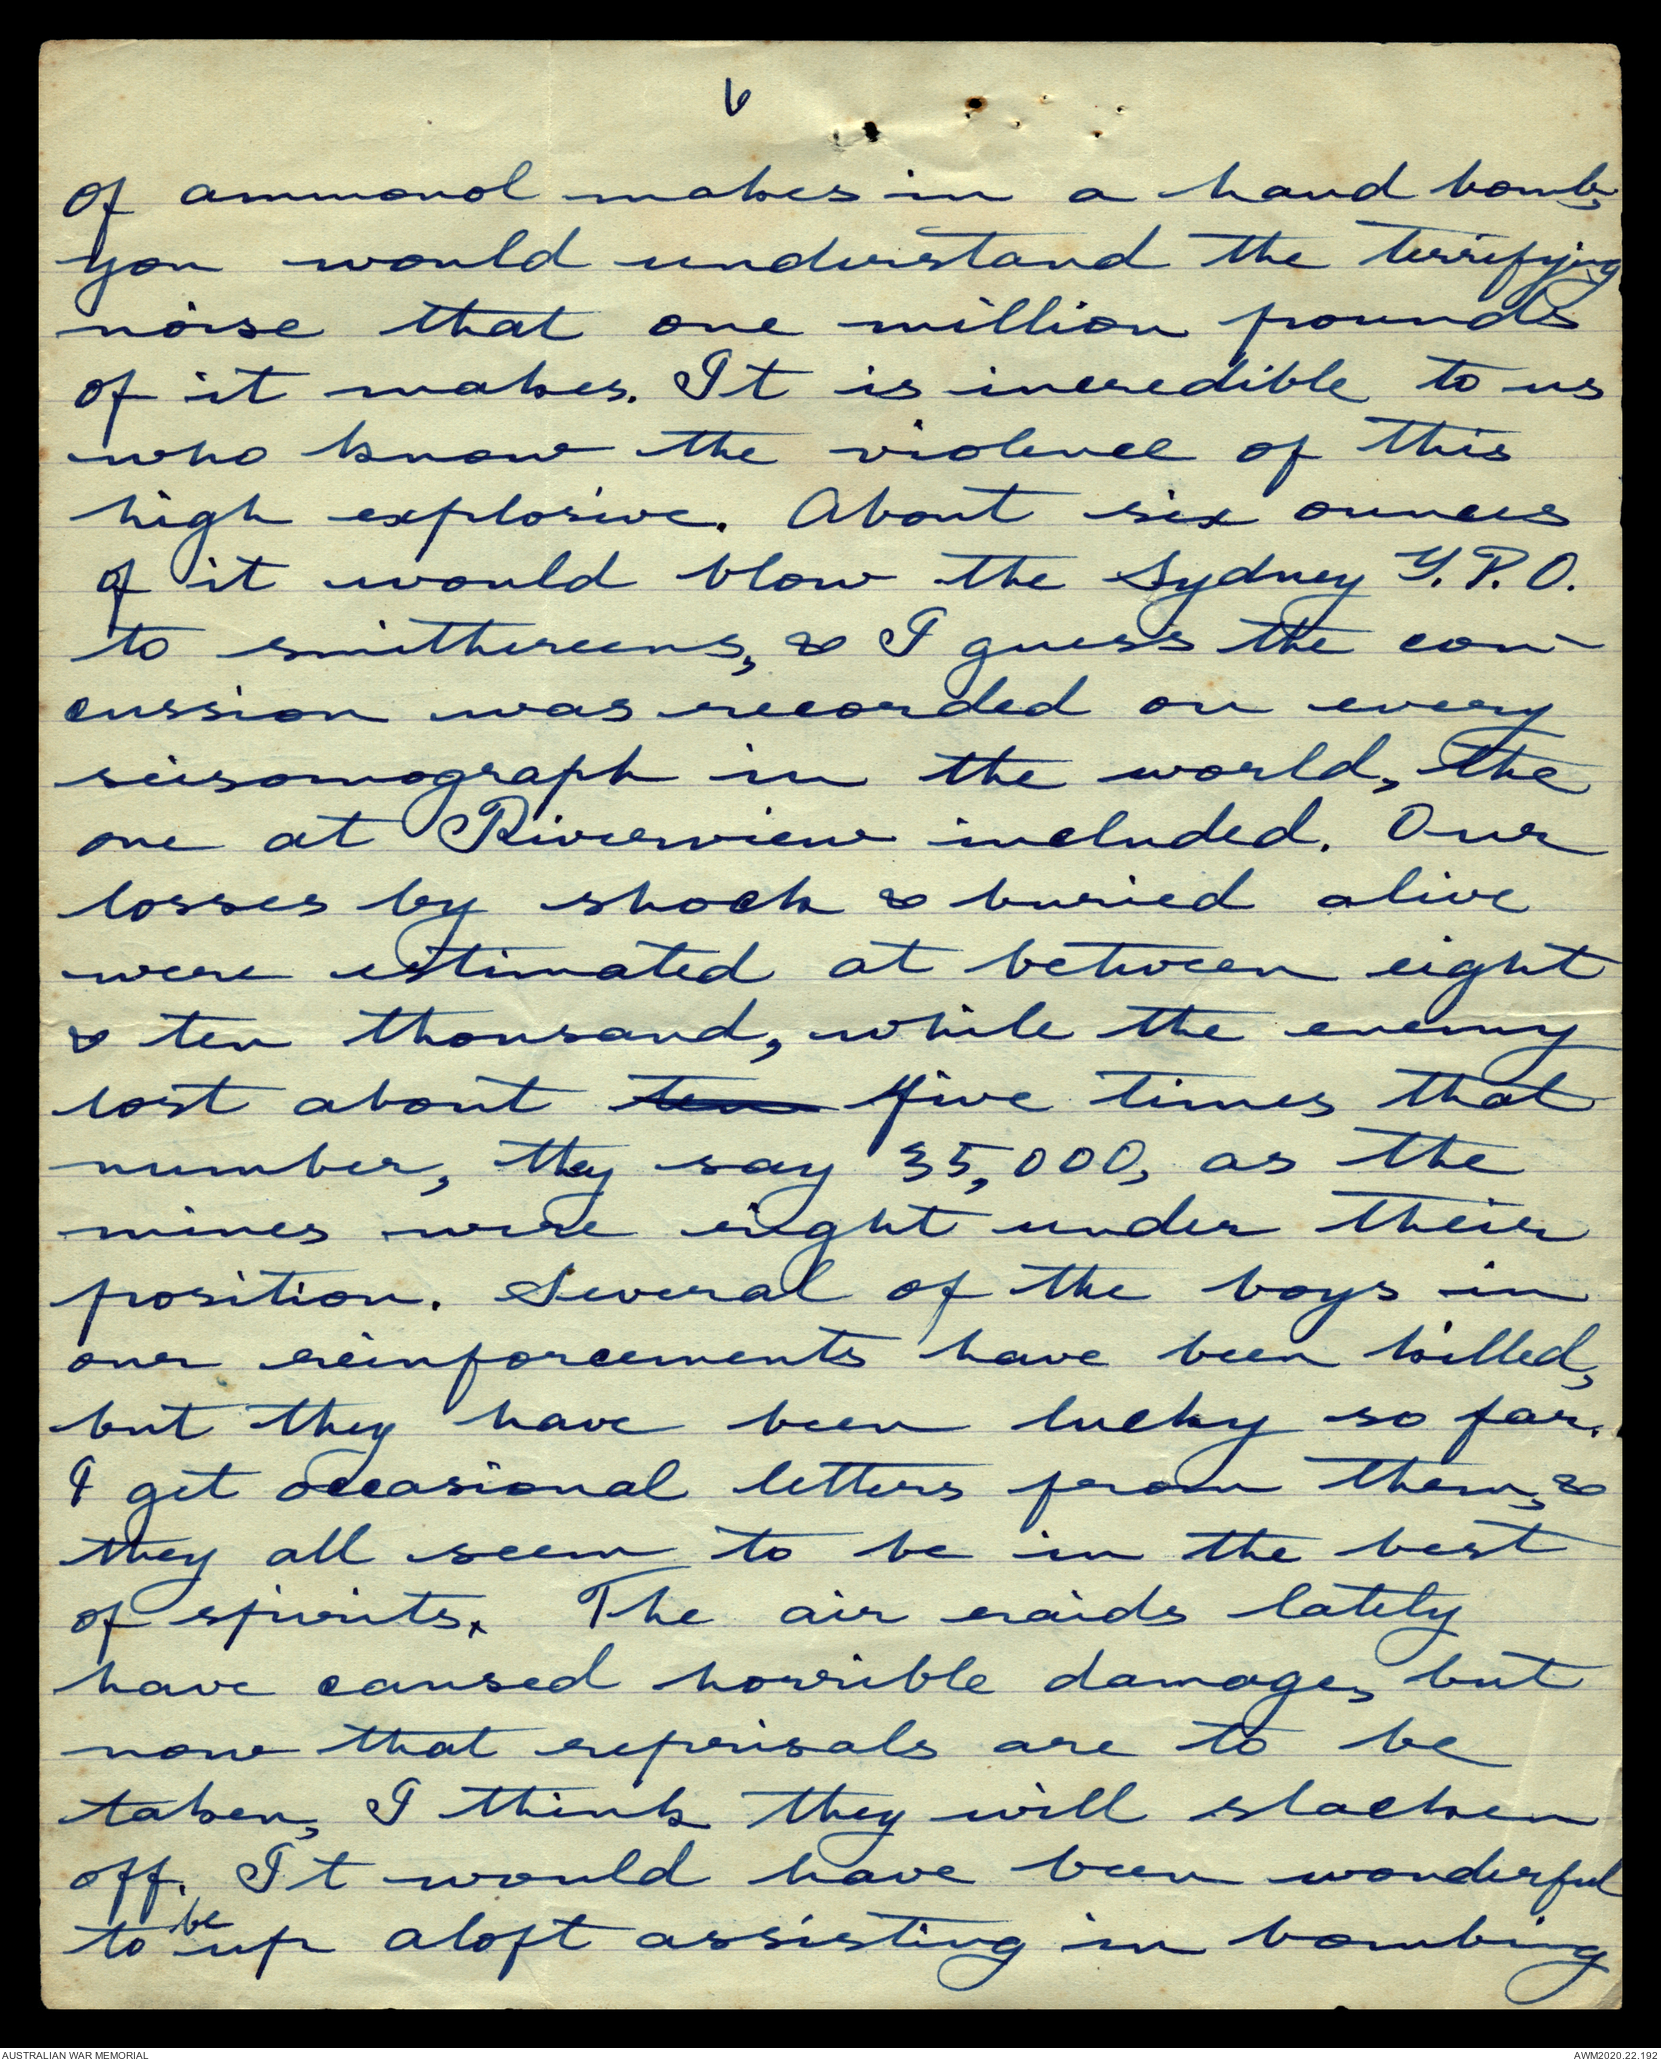 6
of ammonol makes in a hand bomb,
you would understand the terrifying
noise that one million pounds
of it makes. It is incredible to us
who know the violence of this
high explosive. About six ounces
of it would blow the Sydney G.P.O.
to smithereens, & I guess the con-
cussion was recorded on every
seisomograph in the world, the
one at Riverview included. Our
losses by shock & buried alive
were estimated at between eight
& ten thousand, while the enemy
lost about ten five times that
number, they say 35,000, as the
mines were right under their
position. Several of the boys in
our reinforcements have been killed,
but they have been lucky so far.
I get occasional letters from them, &
they all seem to be in the best
of spirits. The air raids lately
have caused horrible damage, but
now that reprisals are to be
taken, I think they will slacken
off. It would have been wonderful
to be up aloft assisting in bombing
AUSTRALIAN WAR MEMORIAL
AWM2020.22.192